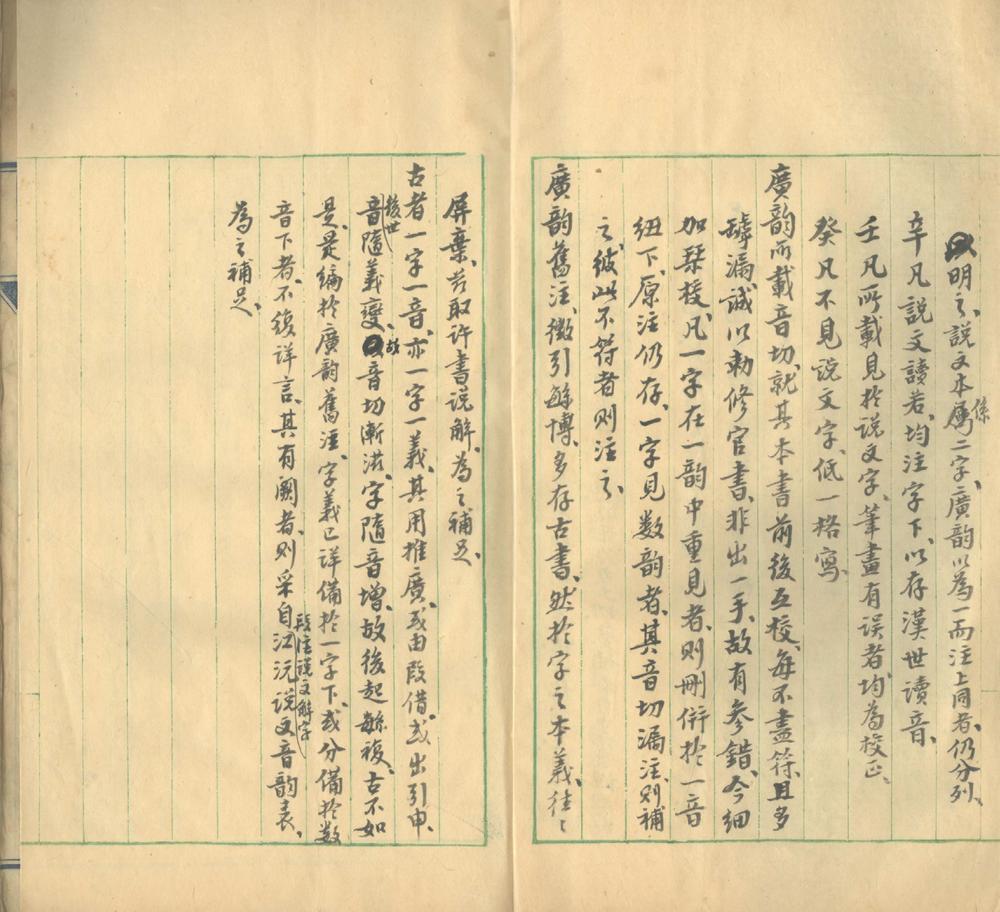 明之、說文本係屬二字、廣韵以為一而注上同者、仍分列、
辛凡說文讀若、均注字下、以存漢世讀音、
壬凡所載見於說文字、筆畫有误者、均為校正、
癸凡不見說文字、低一格寫、
廣韵所載音切、就其本書前後互校、每不盡符、且多
罅漏、誠以勅修官書、非出一手、故有参錯、今细
加栞掕、凡一字在一韵中重見者、則刪併於一音
纽下、原注仍存、一字見数韵者、其音切漏注、則補
之、彼此不符者則注之、
廣韵舊注、徵引緐博、多存古書、然於字之本義、往〻
屏棄、兹取許書說解、為之補足、
古者一字一音、亦一字一義、其用推廣、或由叚借、或出引申、
後世音隨義變、故音切漸滋、字隨音增、故後起緐複、古不如
是、是编於廣韵舊注、字義已详備於一字下、或分備於数
音下者、不復详言、其有阙者、則采自江沅說文音韵表、段注說文解字
為之補足、